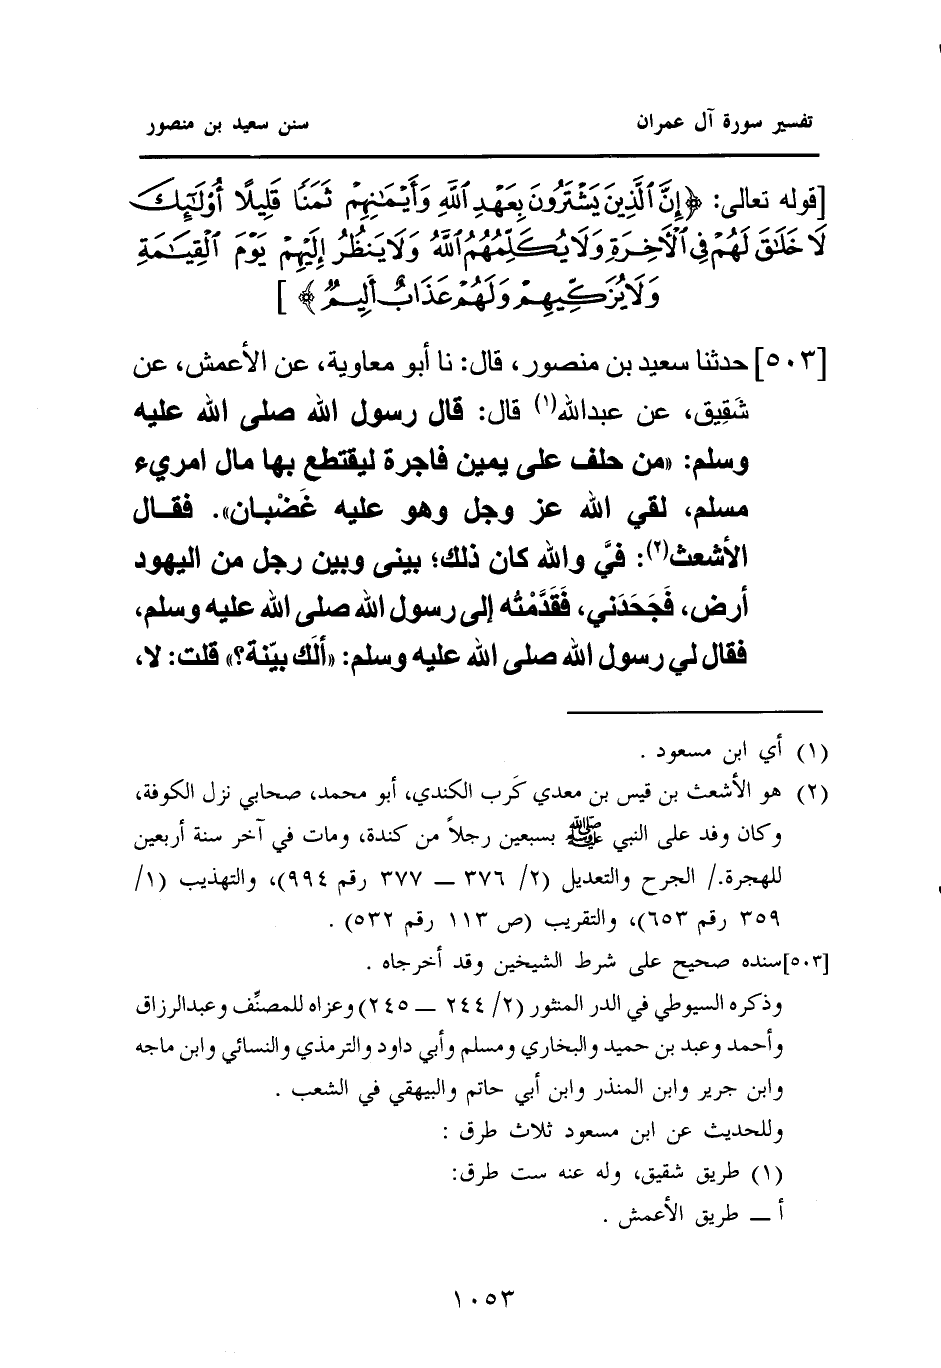 تفسير سورة آل عمران
سنن سعيد بن منصور
[قوله تعالى: ﴿إِنَّ ٱلَّذِينَ يَشْتَرُونَ بِعَهْدِ ٱللَّهِ وَأَيْمَٰنِهِمْ ثَمَنًا قَلِيلًا أُو۟لَٰٓئِكَ
لَا خَلَٰقَ لَهُمْ فِى ٱلْأَخِرَةِ وَلَا يُكَلِّمُهُمُ ٱللَّهُ وَلَا يَنظُرُ إِلَيْهِمْ يَوْمَ ٱلْقِيَٰمَةِ
وَلَا يُزَكِّيهِمْ وَلَهُمْ عَذَابٌ أَلِيمٌ﴾]
[٥٠٣] حدثنا سعيد بن منصور، قال: نا أبو معاوية، عن الأعمش، عن
شَقِيق، عن عبدالله(١) قال: قال رسول الله صلى الله عليه
وسلم: «من حلف على يمين فاجرة ليقتطع بها مال امريء
مسلم، لقي الله عز وجل وهو عليه غَضْبان». فقال
الأشعث(٢): فيَّ والله كان ذلك؛ بينى وبين رجل من اليهود
أرض، فَجَحَدَني، فَقَدَّمْتُه إلى رسول الله صلى الله عليه وسلم،
فقال لي رسول الله صلى الله عليه وسلم: «ألَك بيّنة؟» قلت: لا،
(١) أي ابن مسعود .
(٢) هو الأشعث بن قيس بن معدي كَرب الكندي، أبو محمد، صحابي نزل الكوفة،
وكان وفد على النبي ﷺ بسبعين رجلاً من كندة، ومات في آخر سنة أربعين
للهجرة./ الجرح والتعديل (٢/ ٣٧٦ ــ ٣٧٧ رقم ٩٩٤)، والتهذيب (١/
٣٥٩ رقم ٦٥٣)، والتقريب (ص ١١٣ رقم ٥٣٢) .
[٥٠٣] سنده صحيح على شرط الشيخين وقد أخرجاه .
وذكره السيوطي في الدر المنثور (٢/ ٢٤٤ ــ ٢٤٥) وعزاه للمصنِّف وعبدالرزاق
وأحمد وعبد بن حميد والبخاري ومسلم وأبي داود والترمذي والنسائي وابن ماجه
وابن جرير وابن المنذر وابن أبي حاتم والبيهقي في الشعب .
وللحديث عن ابن مسعود ثلاث طرق :
(١) طريق شقيق، وله عنه ست طرق:
أ ــ طريق الأعمش .
١٠٥٣